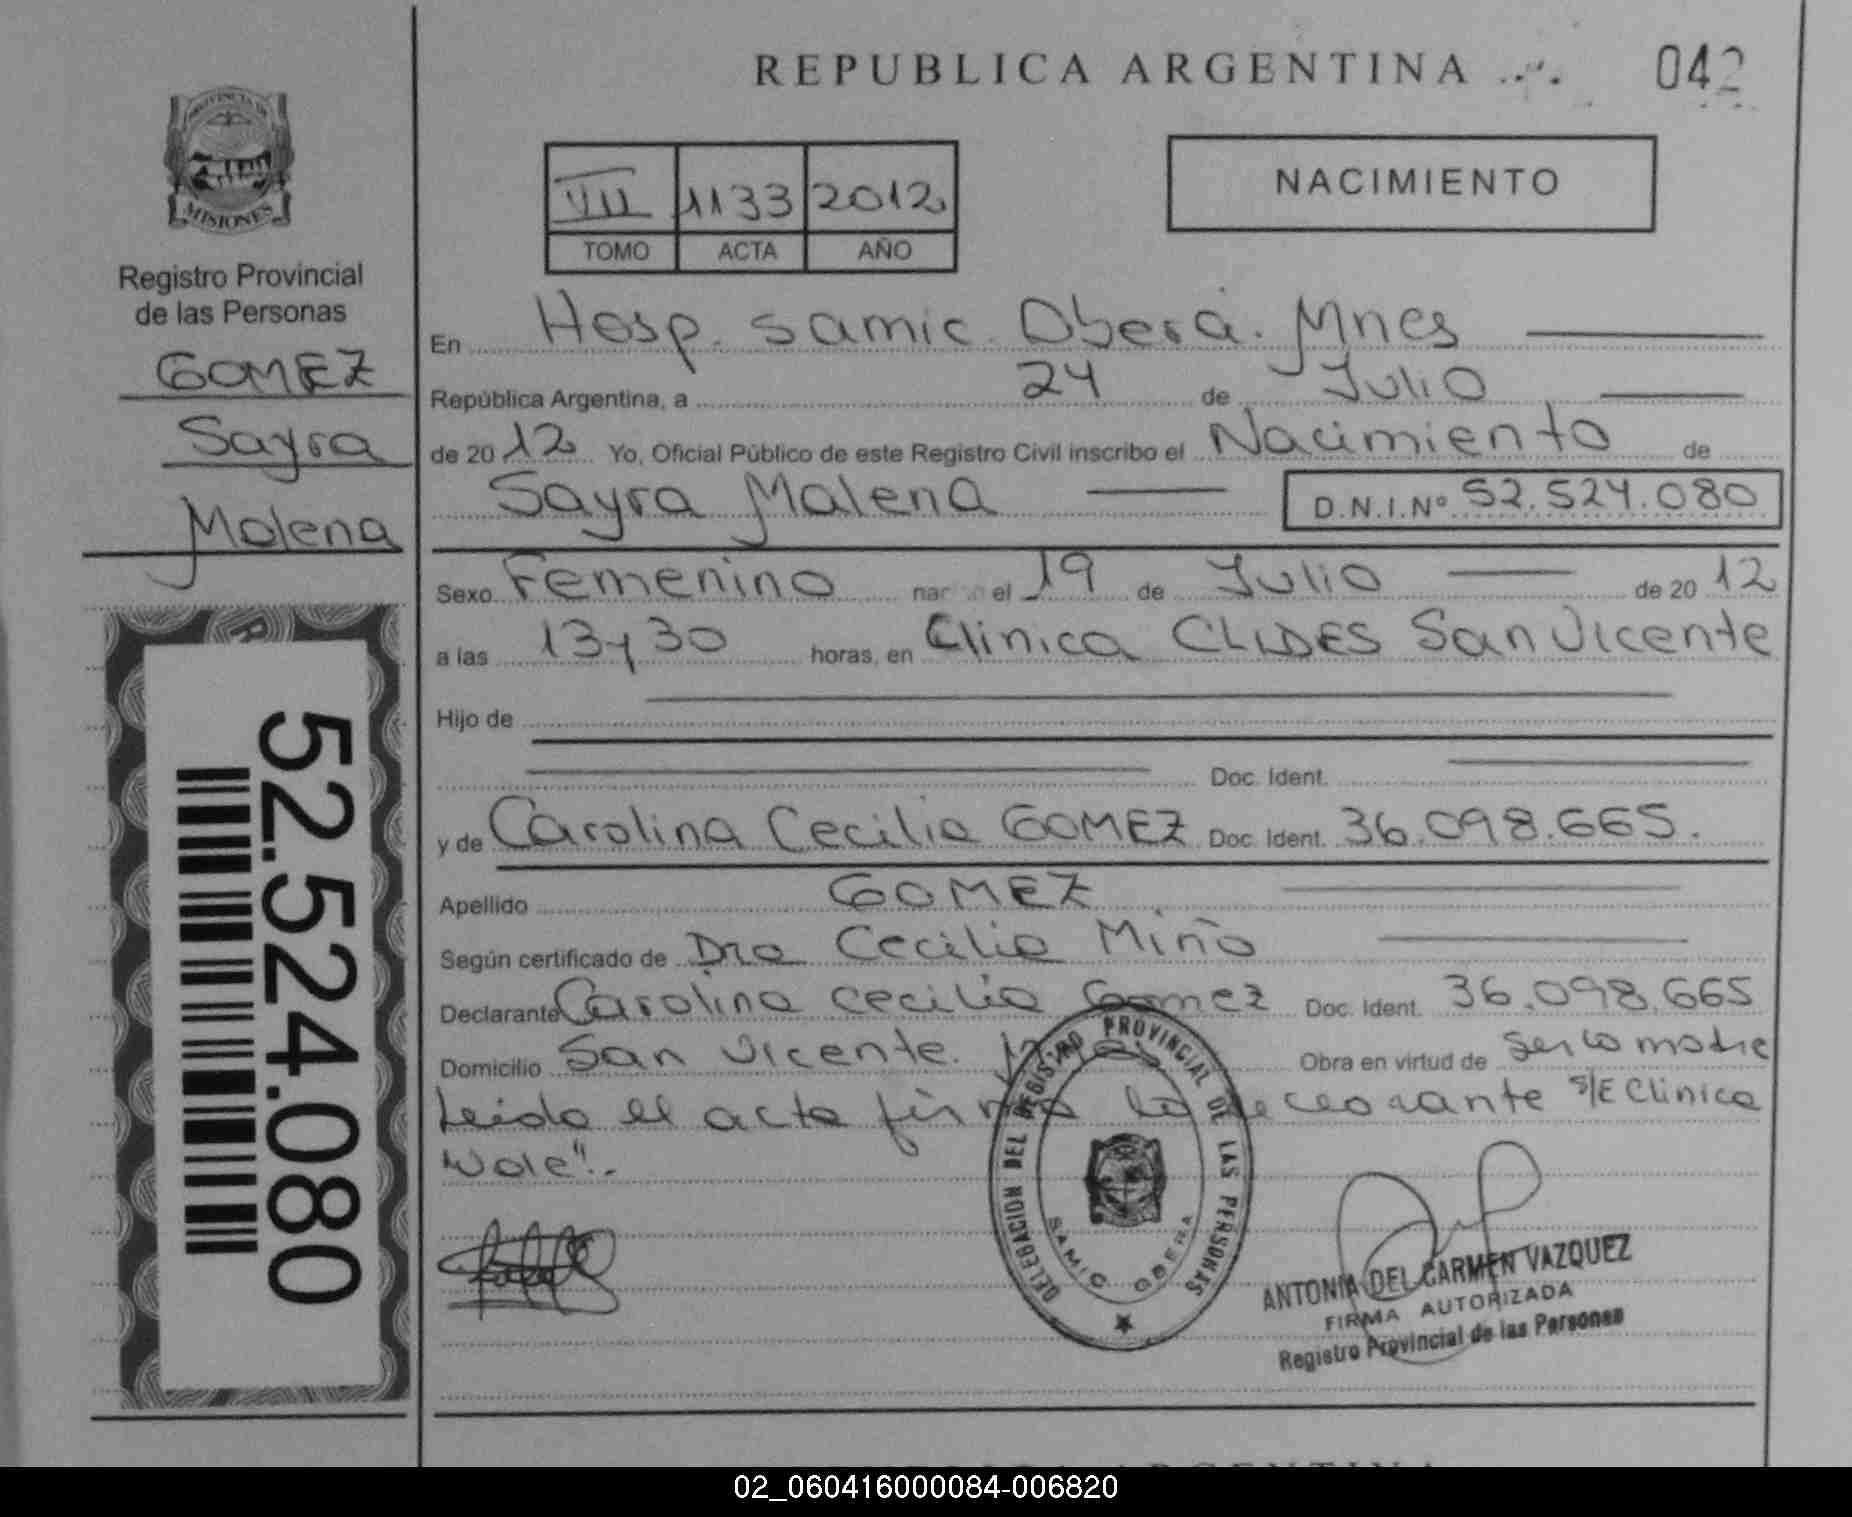 REPUBLICA ARGENTINA
042
PROVINCIA DE
MISIONES
Registro Provincial
de las Personas
GOMEZ
Sayra
Malena
52.524.080
VII 1133 2012
TOMO ACTA AÑO
NACIMIENTO
En Hosp. Samic. Oberá. Mnes
República Argentina, a 24 de Julio
de 2012 Yo, Oficial Público de este Registro Civil inscribo el Nacimiento de
Sayra Malena D.N.I.Nº 52.524.080
Sexo Femenino nacido el 19 de Julio de 2012
a las 13 y 30 horas, en Clinica CLIDES San Vicente
Hijo de
Doc. Ident.
y de Carolina Cecilia GOMEZ Doc. Ident. 36.098.665.
Apellido GOMEZ
Según certificado de Dra Cecilia Miño
Declarante Carolina Cecilia Gomez Doc. Ident. 36.098.665
Domicilio San Vicente. Obra en virtud de ser la madre
Leida el acta firma la declarante S/E Clinica
Vale".-
DELEGACION DEL REGISTRO PROVINCIAL DE LAS PERSONAS
SAMIC OBERA
ANTONIA DEL CARMEN VAZQUEZ
FIRMA AUTORIZADA
Registro Provincial de las Personas
ARGENTINA
02_060416000084-006820